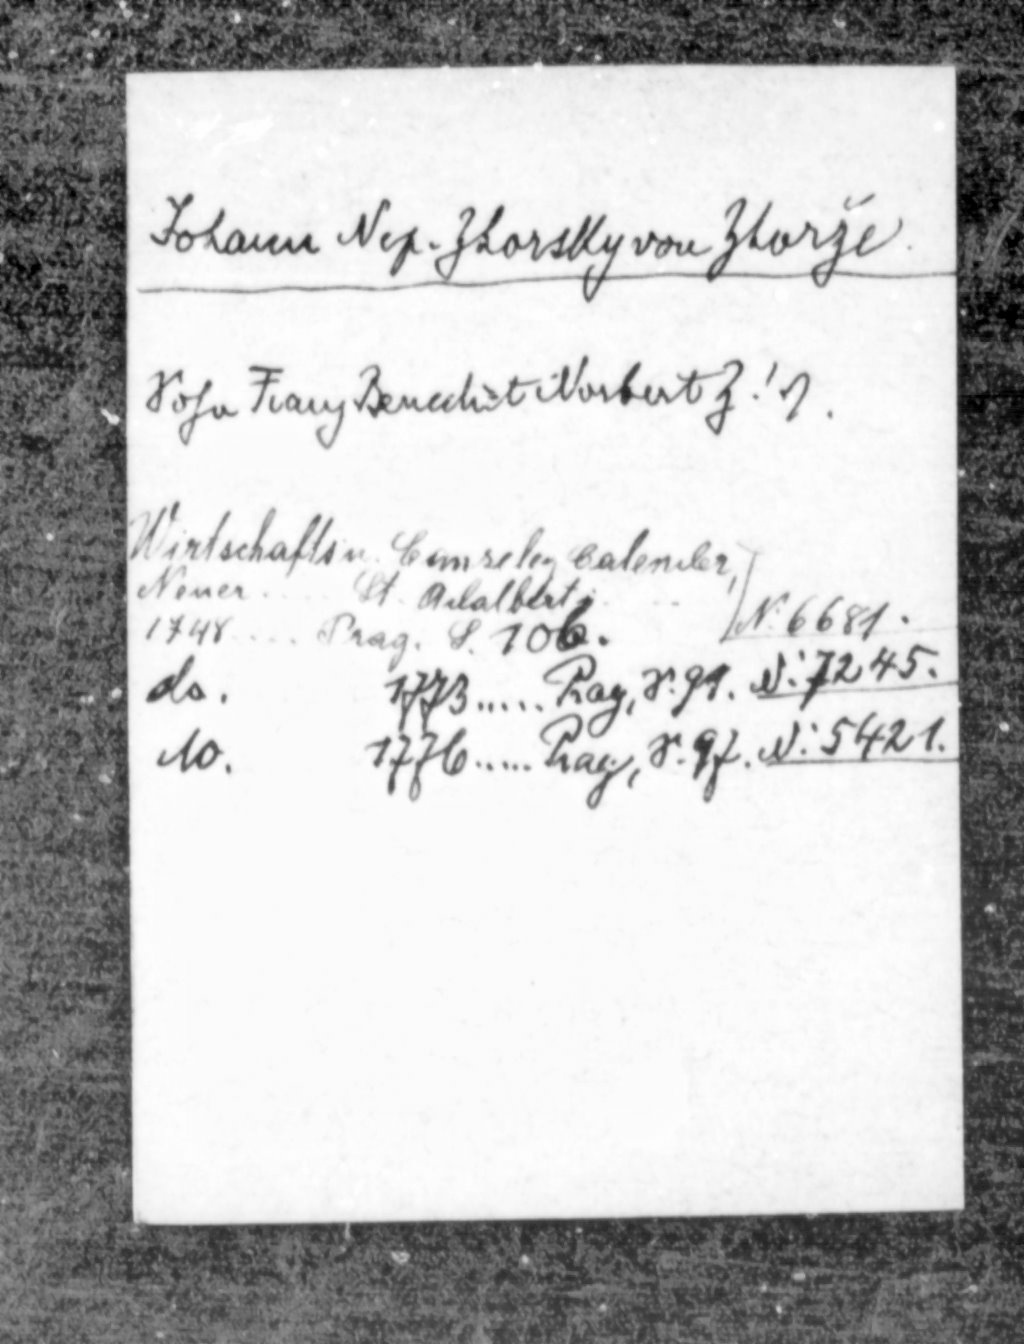 Johann Nep. Zhorsky von Zhorže.
Sohn Franz Benedict Norbert Z.!
Wirtschafts u. Canzeley Calender,
Neuer ..... St. Adalbert .. ..
1748 .... Prag. S. 106. N: 6681.
do. 1773 ..... Prag, S. 91. N: 7245.
do. 1776 ..... Prag, S. 97. N: 5421.